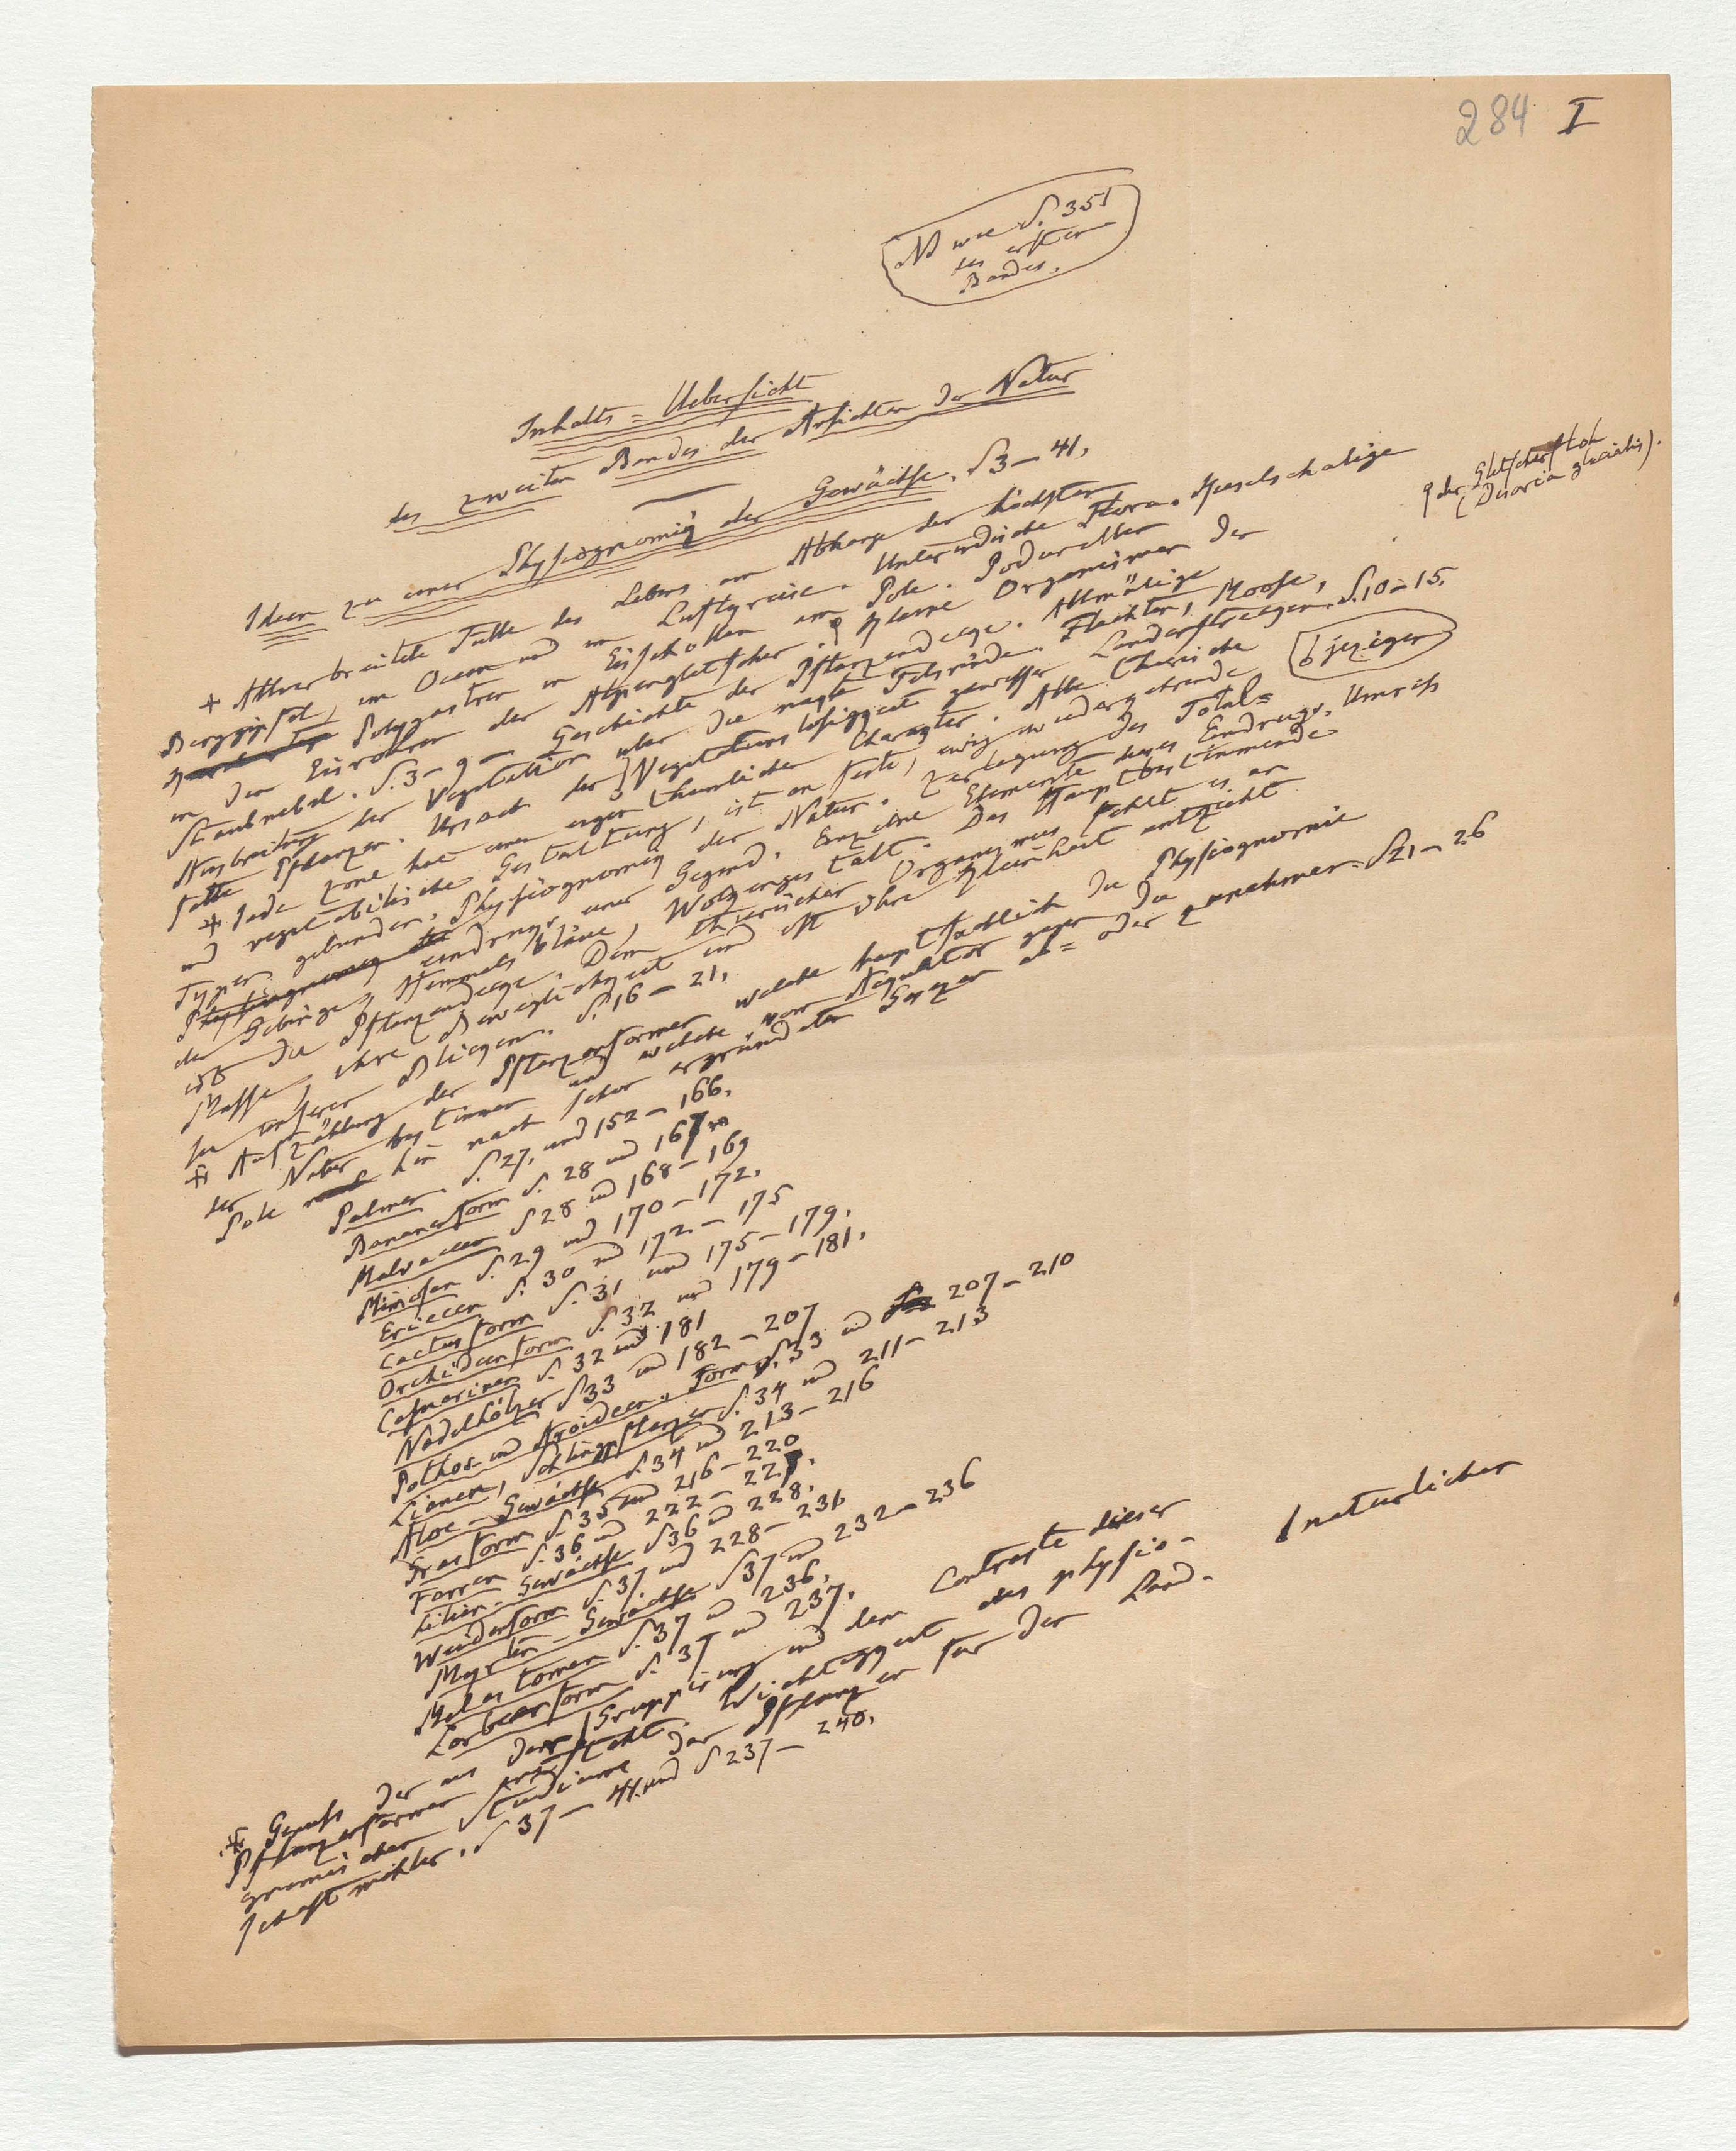 284 I
NB wie S. 351
des ersten
Bandes.
Inhalts=Uebersicht
des zweiten Bandes der Ansichten der Natur
Ideen zu einer Physiognomik der Gewächse. S 3–41.
* Allverbreitete Fülle des Lebens am Abhange der höchsten
Berggipfel, im Ocean und im Luftkreise. Unterirdische Flora. Kieselschalige
Polygastren in Eisschollen am Pole. Podurellen
in den Eisröhren der Alpengletscher; kleine Organismen der
der Gletscherfloh
(Desoria glacialis).
Staubnebel. S. 3–9 – Geschichte der Pflanzendecke. Allmälige
Ausbreitung der Vegetation über die nackte Felsrinde. Flechten, Moose,
fette Pflanzen. Ursach der Vegetationslosigkeit gewisser Landesstrecken. S. 10–15.
jeziger
* Jede Zone hat einen eigenthümlichen Charakter. Alle thierische
und vegetabilische Gestaltung, ist an feste, ewig wiederkehrende
Typen gebunden. Physiognomik der Natur. Zerlegung des Total=
eindruks einer Gegend. Einzelne Elemente dieses Eindruks. Umriss
der Gebirge, Himmelsbläue, Wolkengestalt. Das Hauptbestimmende
ist die Pflanzendecke. Dem thierischen Organismus fehlt es an
Masse, ihre Beweglichkeit und oft ihre Kleinheit entzieht
sie unseren Blicken. S. 16–21.
* Aufzählung der Pflanzenformen welche hauptsächlich die Physiognomie
der Natur bestimmen und welche vom Aequator gegen die
Pole hin nach schon ergründeten Gesezen ab= oder zunehmen. S 21–26
Palmen S. 27, und 152–166.
Bananenform S. 28 und 167
Malvaceen S 28 und 168–169
Mimosen S. 29 und 170–172.
Ericeen S. 30 und 172–175
Cactusform S. 31 und 175–179.
Orchideenform S. 32 und 179–181.
Casuarinen S. 32 und 181
Nadelhölzer S 33 und 182–207
Pothos und Aroideen-Form S. 33 und 207–210
Lianen, Schlingpflanzen S. 34 und 211–213
Aloe-Gewächse S. 34 und 213–216
Grasform S. 35 und 216–220
Farren S. 36 und 222–227.
Lilien-Gewächse S 36 und 228.
Weidenform S. 37 und 228–231
Myrten-Gewächse S 37 und 232–236
Melastomen S. 37 und 236.
Lorbeerform S. 37 und 237.
* Genuss der aus der natürlichen Gruppirung und dem Contraste dieser
Pflanzenformen entsteht. Wichtigkeit des physio-
gnomischen Studiums der Pflanzen für den Land-
schaftmahler. S 37–41 und S 237–240.